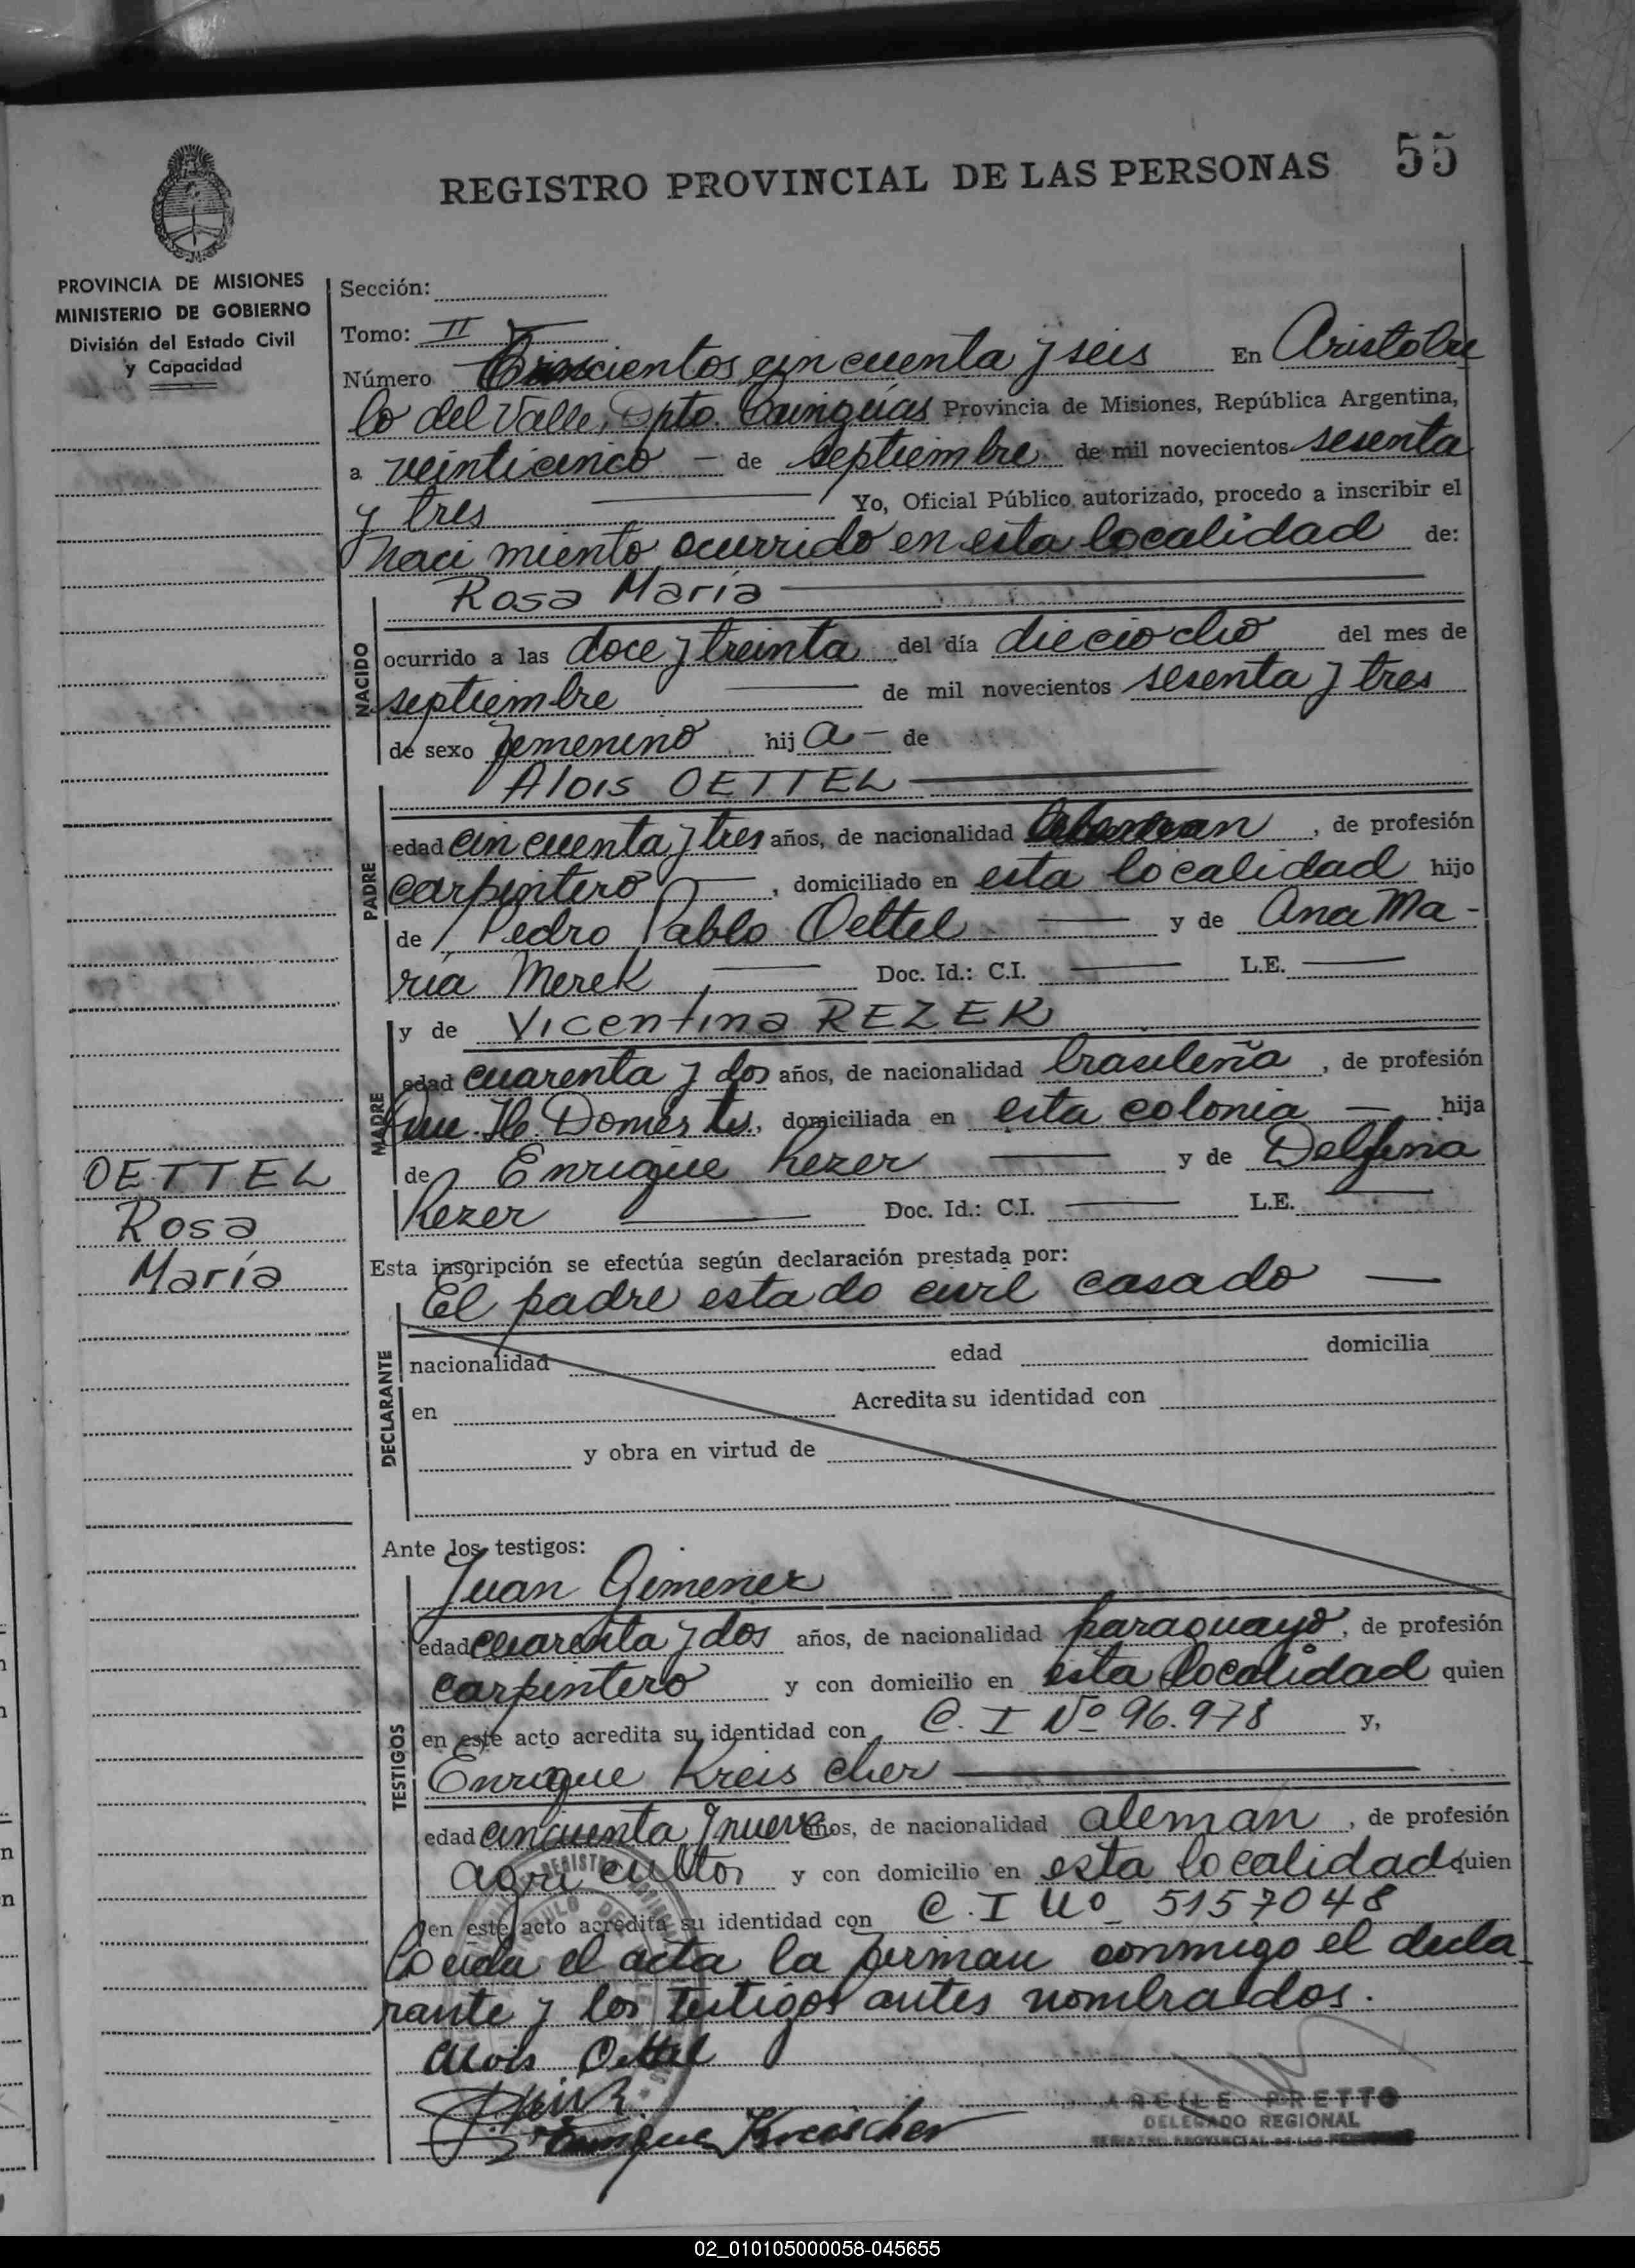 REGISTRO PROVINCIAL DE LAS PERSONAS 55
PROVINCIA DE MISIONES
MINISTERIO DE GOBIERNO
División del Estado Civil
y Capacidad
OETTEL
Rosa
María
Sección:
Tomo: II
Número Trescientos cincuenta y seis En Aristobu
lo del Valle, Dpto. Cainguás Provincia de Misiones, República Argentina,
a veinticinco — de septiembre de mil novecientos sesenta
y tres Yo, Oficial Público autorizado, procedo a inscribir el
naci miento ocurrido en esta localidad de:
Rosa María
NACIDO
ocurrido a las doce y treinta del día dieciocho del mes de
septiembre de mil novecientos sesenta y tres
de sexo femenino hija — de
Alois OETTEL
PADRE
edad cincuenta y tres años, de nacionalidad , de profesión
carpintero , domiciliado en esta localidad hijo
de Pedro Pablo Oettel y de Ana Ma-
ría Merek Doc. Id.: C.I. L.E.
y de Vicentina REZEK
MADRE
edad cuarenta y dos años, de nacionalidad brasileña , de profesión
Domést. , domiciliada en esta colonia — hija
de Enrique Rezer y de Delfina
Rezer Doc. Id.: C.I. L.E.
Esta inscripción se efectúa según declaración prestada por:
El padre estado civil casado —
DECLARANTE
nacionalidad edad domicilia
en Acredita su identidad con
y obra en virtud de
Ante los testigos:
Juan Gimenez
TESTIGOS
edad cuarenta y dos años, de nacionalidad paraguayo, de profesión
carpintero y con domicilio en esta localidad quien
en este acto acredita su identidad con C. I Nº 96.978 y,
Enrique Kreischer
edad cincuenta y nueve años, de nacionalidad aleman , de profesión
agricultor y con domicilio en esta localidad quien
en este acto acredita su identidad con C. I Nº 5157048
Leida el acta la firman conmigo el decla
rante y los testigos antes nombrados.
Alois Oettel
Enrique Kreischer
PRETTO
DELEGADO REGIONAL
REGISTRO PROVINCIAL DE LAS PERSONAS
02_010105000058-045655